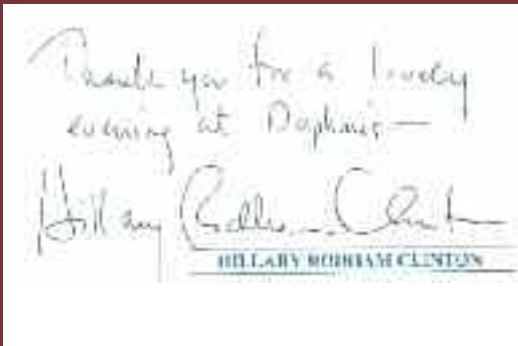 Thank you for a lovely
evening at Daphne's—
Hillary Rodham Clinton
HILLARY RODHAM CLINTON